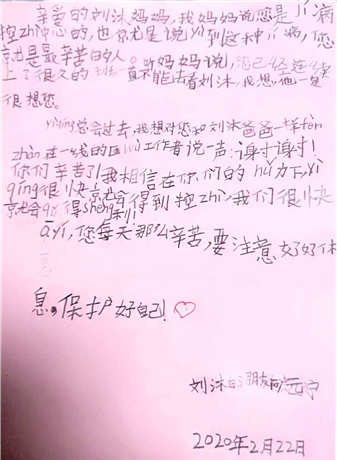 亲爱的刘沐妈妈,我妈妈说您是ji病
控zhì中心的,也就是说yù到这种ji病,您
就是最辛苦的人。听妈妈说,您已经连续
上了很久的 一直不能去看刘沐,我想他一定
很想您。
yìqíng总会过去,我想对您和刘沐爸爸一样fèn
zhàn在一线的医wù工作者说一声:谢谢!谢谢!
你们辛苦了!我相信在你们的nǔ力下,yì
qíng很快就会得到控zhì,我们很快
就会qǔ得shèng利
āyí,您每天那么辛苦,要注意好好休
息,保护好自己!♡
刘沐的朋友
2020年2月22日